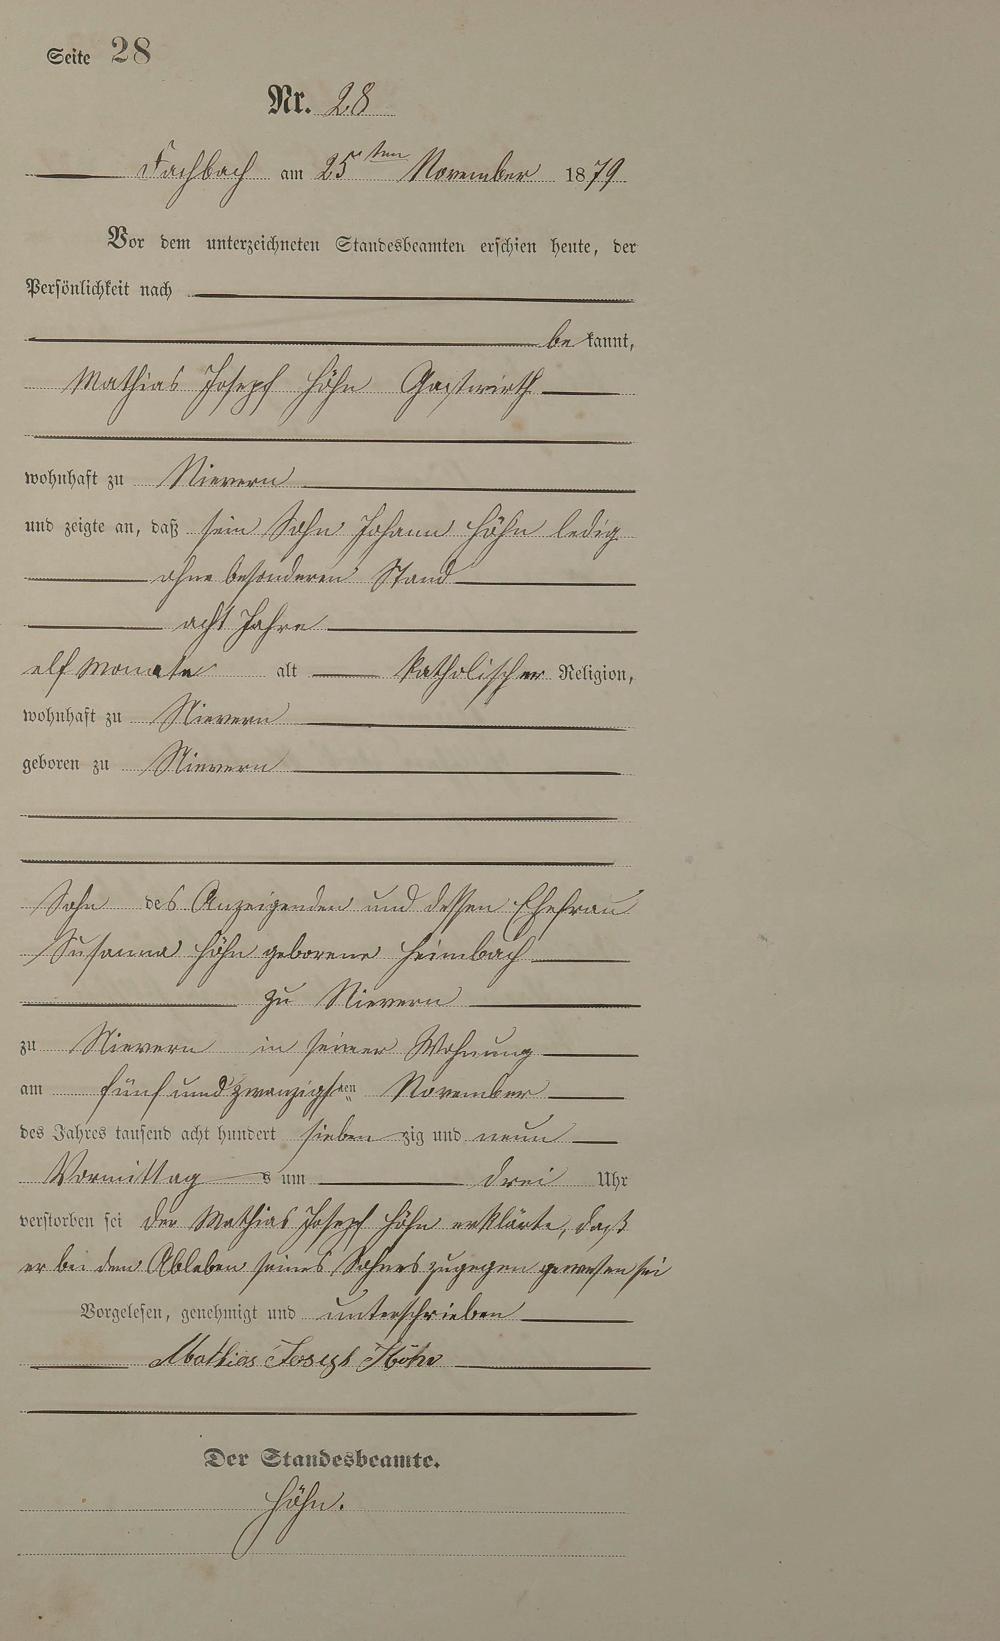 Seite 28
Nr. 28
Fachbach am 25ten November 1879
Vor dem unterzeichneten Standesbeamten erschien heute, der
Persönlichkeit nach
be kannt,
Mathias Josepf Höhn Gastwirth
wohnhaft zu Nievern
und zeigte an, daß sein Sohn Johann Höhn ledig
ohne besonderen Stand
acht Jahre
elf Monate alt katholischer Religion,
wohnhaft zu Nievern
geboren zu Nievern
Sohn des Anzeigenden und dessen Ehefrau
Susanna Höhn geborene Heimbach
zu Nievern
zu Nievern in seiner Wohnung
am fünf und zwanzigsten November
des Jahres tausend acht hundert sieben zig und neun
Vormittag s um drei Uhr
verstorben sei der Mathias Josepf Höhn erklärte, daß
er bei dem Ableben seines Sohnes zugegen gewesen sei
Vorgelesen, genehmigt und unterschrieben
Mathias Joseph Höhn
Der Standesbeamte.
Höhn.